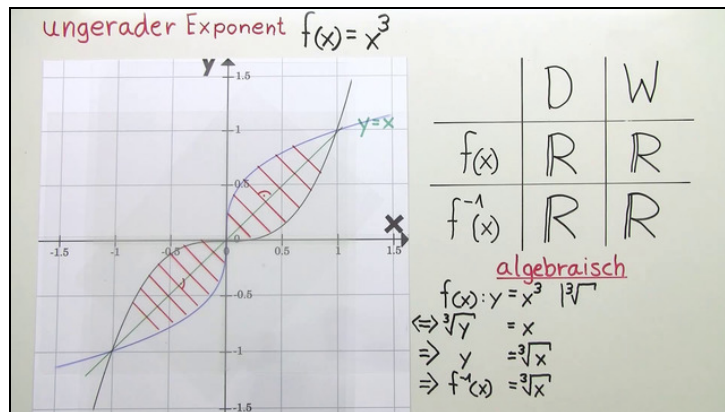 ungerader Exponent f(x) = x³
y
1.5
1
0.5
0
-0.5
-1
-1.5
-1.5 -1 -0.5 0.5 1 1.5
x
y=x
D W
f(x) ℝ ℝ
f⁻¹(x) ℝ ℝ
algebraisch
f(x): y = x³ |∛
⇔ ∛y = x
⇒ y = ∛x
⇒ f⁻¹(x) = ∛x